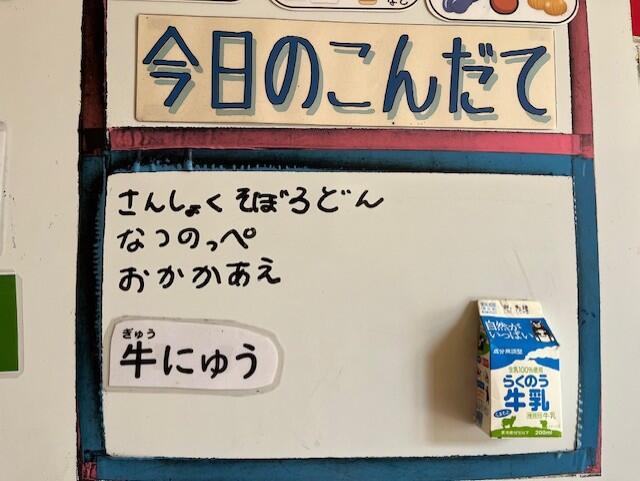 なし
今日のこんだて
さんしょくそぼろどん
なつのっぺ
おかかあえ
ぎゅう
牛にゅう
自然が
いっぱい
成分無調整
生乳100%使用
らくのう
牛乳
種類別牛乳
200ml